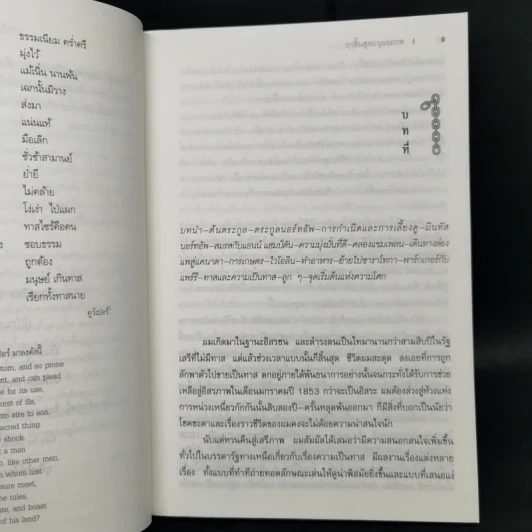 ธรรมเนียม คร่ำครึ
มุ่งไว้
แม้เนิ่น นานพ้น
เฉกนั้นมิวาง
ส่งมา
แน่นแท้
มือเลิก
ชั่วช้าสามานย์
ย่ำยี
ไม่คล้าย
โง่เง่า ไปแผก
ทาสไซร้คือคน
ชอบธรรม
ถูกต้อง
มนุษย์ เกินทาส
เรียกทั้งทาสนาย
คูว์เปอร์
ปอร์ มาลงดังนี้
tom, and so prone
ent, and can plead
for its use,
orst of ills,
om sire to son,
acred thing.
e shock
t a man
o, like other men,
n whom lust
sure meet,
he rules,
de, and boast
of his land?
ฤๅสิ้นสุดมนุษยภาพ I 9
บ
ท
ที่
บทนำ–ต้นตระกูล–ตระกูลนอร์ทอัพ–การกำเนิดและการเลี้ยงดู–มินทัส
นอร์ทอัพ–สมรสกับแอนน์ แฮมป์ตัน–ความมุ่งมั่นที่ดี–คลองแชมเพลน–เดินทางล่อง
แพสู่แคนาดา–การเกษตร–ไวโอลิน–ทำอาหาร–ย้ายไปซาราโทกา–พาร์กเกอร์กับ
แพร์รี–ทาสและความเป็นทาส–ลูก ๆ–จุดเริ่มต้นแห่งความโศก
ผมเกิดมาในฐานะอิสรชน และดำรงตนเป็นไทมานานกว่าสามสิบปีในรัฐ
เสรีที่ไม่มีทาส แต่แล้วช่วงเวลาแบบนั้นก็สิ้นสุด ชีวิตผมสะดุด ลงเอยที่การถูก
ลักพาตัวไปขายเป็นทาส ตกอยู่ภายใต้พันธนาการอย่างนั้นจนกระทั่งได้รับการช่วย
เหลือสู่อิสรภาพในเดือนมกราคมปี 1853 กว่าจะเป็นอิสระ ผมต้องล่วงสู่ห้วงแห่ง
การหน่วงเหนี่ยวกักกันนั้นสิบสองปี–ครั้นหลุดพ้นออกมา ก็มีสิ่งที่บอกเป็นนัยว่า
โชคชะตาและเรื่องราวชีวิตของผมคงจะไม่ด้อยความน่าสนใจนัก
นับแต่หวนคืนสู่เสรีภาพ ผมสัมผัสได้เสมอว่ามีความสนอกสนใจเพิ่มขึ้น
ทั่วไปในบรรดารัฐทางเหนือเกี่ยวกับเรื่องความเป็นทาส มีผลงานเรื่องแต่งหลาย
เรื่อง ทั้งแบบที่ทำทีถ่ายทอดลักษณะเด่นให้ดูน่าพิสมัยยิ่งขึ้นและแบบที่เสนอแง่